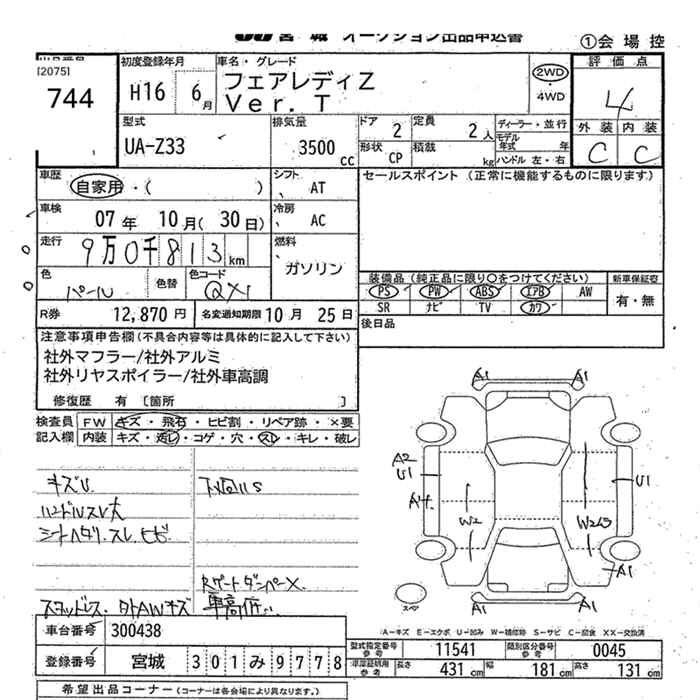 宮城 オークション出品申込書
①会場控
出品番号
(2075)
744
初度登録年月
H16 6月
車名・グレード
フェアレディZ
Ver. T
2WD
・4WD
評価点
4
外装 内装
C C
型式
UA-Z33
排気量
3500 CC
ドア 2
定員 2人
形状 CP
積載 kg
ディーラー・並行
モデル年式 年
ハンドル 左・右
車歴
自家用・( )
シフト
AT
セールスポイント (正常に機能するものに限ります)
車検
07年 10月(30日)
冷房
AC
走行
9万0千813km
燃料
ガソリン
色
パール
色替
色コード
QX1
装備品 (純正品に限り○をつけてください)
新車保証書
PS PW ABS エアB AW
SR ナビ TV カワ
有・無
R券 12,870円
名変通知期限 10月 25日
後日品
注意事項申告欄 (不具合内容等は具体的に記入して下さい)
社外マフラー/社外アルミ
社外リヤスポイラー/社外車高調
修復歴 有 [箇所 ]
検査員記入欄
FW キズ・飛石・ヒビ割・リペア跡・×要
内装 キズ・汚レ・コゲ・穴・スレ・キレ・破レ
キズU
下回りS
ハンドルスレ大
シートヘタリ.スレ.ヒビ
Rゲートダンパー×
スタッドレス. 外AWキズ
車高低
A1 A1
A2
U1
A4
U1
W2
W2
A1
A1 A1
スペア
A-キズ E-エクボ U-凹み W-補修跡 S-サビ C-腐食 XX-交換済
車台番号 300438
登録番号 宮城 301み9778
型式指定番号 参考 11541
類別区分番号 参考 0045
車庫証明用 参考 長さ 431cm 幅 181cm 高さ 131cm
希望出品コーナー (コーナーは各会場により異なります。)